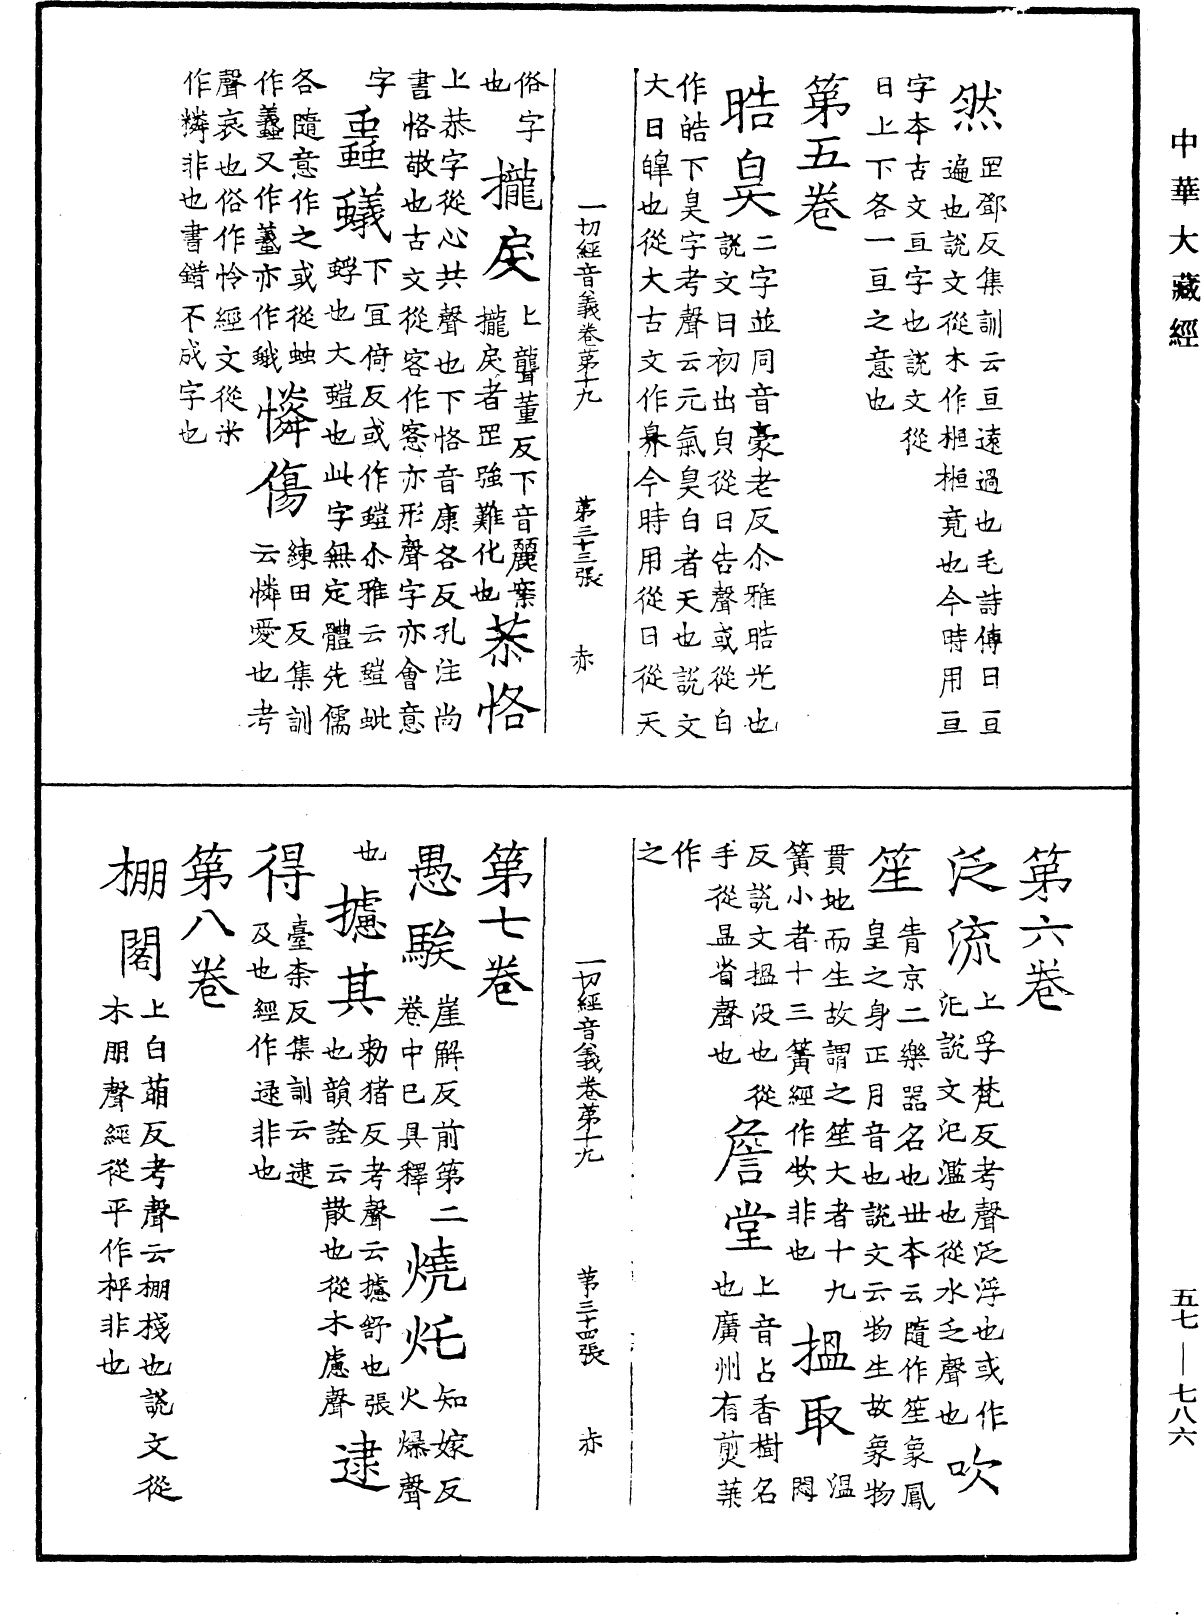 中華大藏經
然 罡鄧反集訓云亘遠過也毛詩傳曰亘
遍也說文從木作㮓㮓竟也今時用亘
字本古文亘字也說文從
日上下各一亘之意也
第五卷
晧昊 二字並同音豪老反尒雅晧光也
說文日初出皃從日告聲或從白
作皓下昊字考聲云元氣昊白者天也說文
大日皥也從大古文作昦今時用從日從天
一切經音義卷第十九 第三十三張 赤
俗字
也 攏戾 上聾董反下音麗案
攏戾者罡強難化也 恭恪
上恭字從心共聲也下恪音康各反孔注尚
書恪敬也古文從客作愙亦形聲字亦會意
字 螶蟻 下冝倚反或作螘尒雅云螘蚍
蜉也大螘也此字無定體先儒
各隨意作之或從䖵
作蠭又作䘁亦作蛾 憐傷 練田反集訓
云憐愛也考
聲哀也俗作怜經文從米
作粦非也書錯不成字也
第六卷
泛流 上孚梵反考聲泛浮也或作
汜說文汜濫也從水乏聲也 吹
笙 青京二樂器名也丗本云隨作笙象鳳
皇之身正月音也說文云物生故象物
貫地而生故謂之笙大者十九
簧小者十三簧經作𥫣非也 搵取 溫悶
反說文搵没也從
手從昷省聲也 詹堂 上音占香樹名
也廣州有煎葉
作
之
一切經音義卷第十九 第三十四張 赤
第七卷
愚騃 崖解反前第二
卷中已具釋 燒灹 知嫁反
火爆聲
也 攄其 勑猪反考聲云攄舒也張
也韻詮云散也從木慮聲 逮
得 臺柰反集訓云逮
及也經作逯非也
第八卷
棚閣 上白萠反考聲云棚棧也說文從
木朋聲經從平作枰非也
五七—七八六